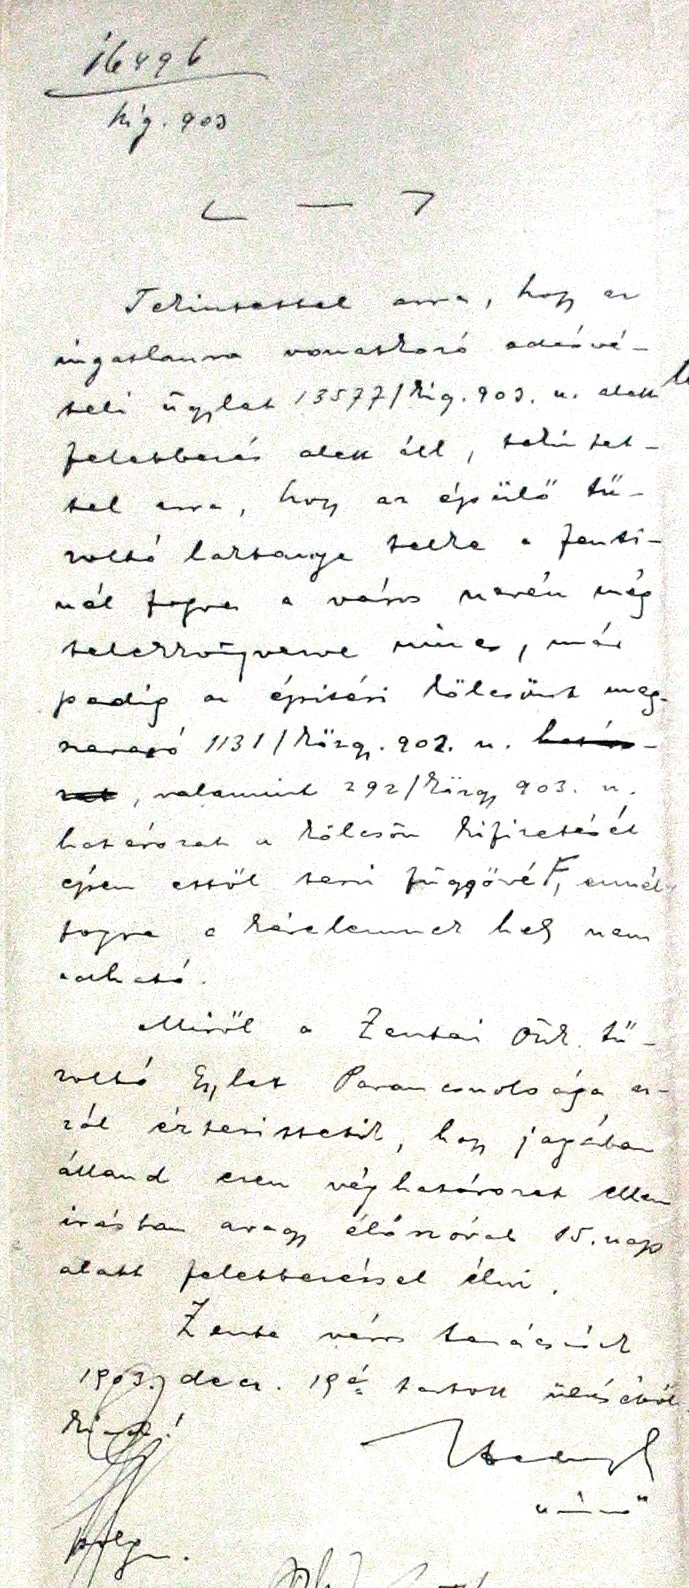 16496
kig. 903
Tekintettel arra, hogy az
ingatlanra vonatkozó adásvé-
teli ügylet 13577/kig. 903. sz. alatt
felebbezés alatt áll, tekintet-
tel arra, hogy az épülő tű-
zoltó laktanya telke a fenti-
nél fogva a város nevén még
telekkönyvezve nincs, már
pedig az építési kölcsönt meg-
szavazó 1131/közgy. 902. sz. határo-
zat, valamint 292/közgy. 903. sz.
határozat a kölcsön kifizetését
épen ettől teszi függővé, ennél-
fogva a kérelemnek hely nem
adható.
Miről a Zentai Önk. tű-
zoltó Egylet Parancsnoksága az-
zal értesíttetik, hogy jogában
álland ezen véghatározat ellen
írásban avagy élőszóval 15. nap
alatt felebbezéssel élni.
Zenta város tanácsának
1903. decz. 19én tartott üléséből